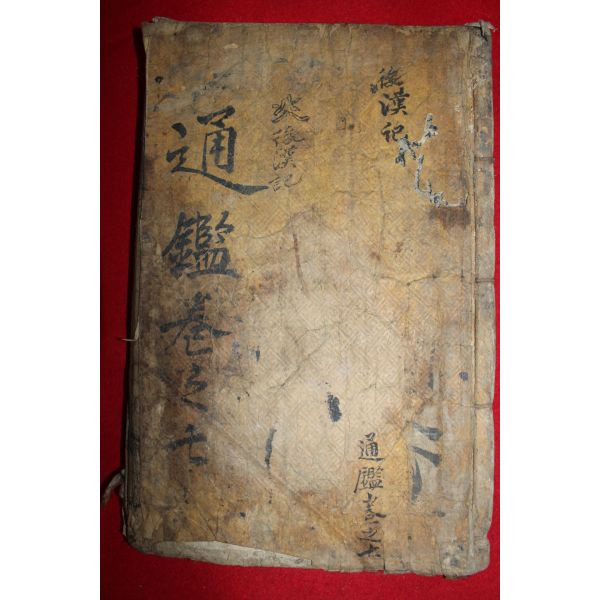 後漢記
通鑑卷之七
後漢記
通鑑卷之七